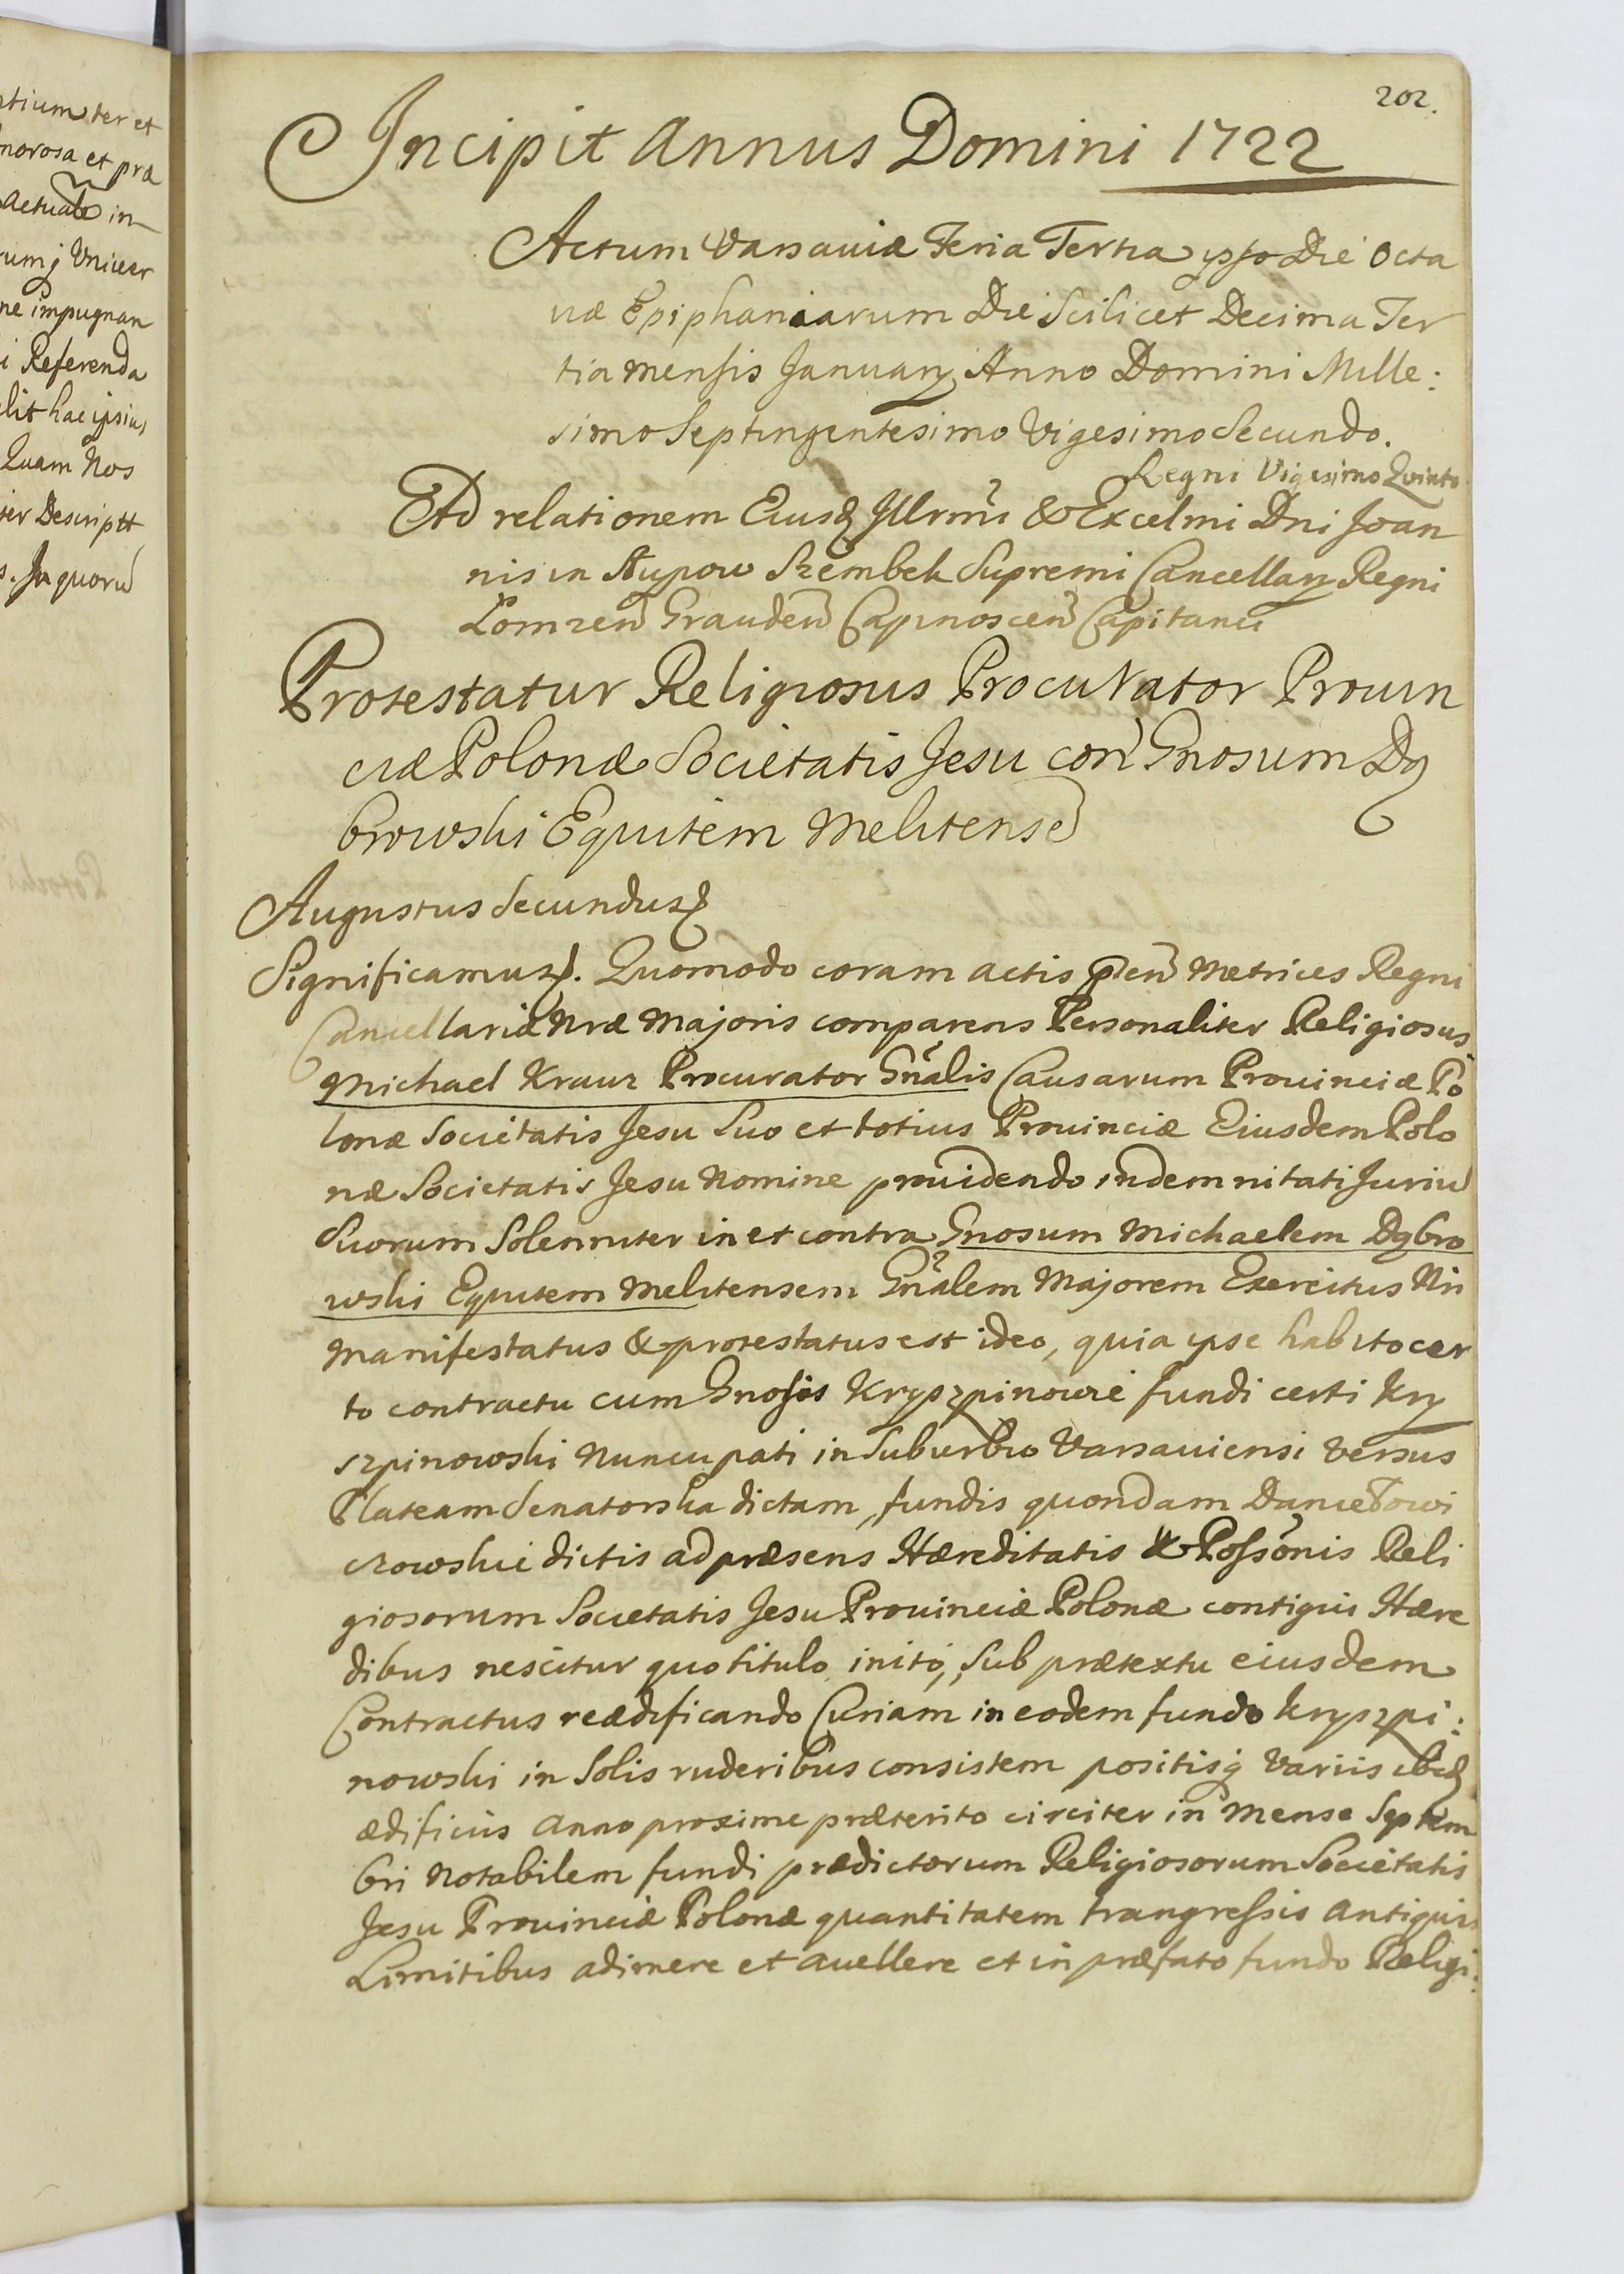 ntium ter et
norosa et præ
Actuale in
rumq; Univer
ne impugnan
i Referenda
elit hac ipsius
Quam Nos
ter Descriptt
s. In quorū
202.
Incipit Annus Domini 1722
Actum Varsaviæ Feria Tertia ipso Die Octa
uæ Epiphaniarum Die Scilicet Decima Ter
tia mensis Januarij Anno Domini Mille:
simo Septingentesimo Vigesimo Secundo.
Regni Vigesimo Qvinto
Ad relationem Eiusd Illrmi & Excelmi Dni Joan
nis in Słupow Szembek Supremi Cancellarij Regni
Lomzen̄ Grauden̄ Capinoscen̄ Capitanei
Protestatur Religiosus Procurator Prouin
ciæ Polonæ Societatis Jesu con Gnosum Dą
browski Equitem Melitensē
Augustus Secundus
Significamus. Quomodo coram actis pñ Metrices Regni
Cancellariæ Nræ Majoris comparens Personaliter Religiosus
Michael Krauz Procurator Gñalis Causarum Prouinciæ Po
lonæ Societatis Jesu Suo et totius Prouinciæ Eiusdem Polo
næ Societatis Jesu Nomine prouidendo indemnitati Juriū
Suorum Solenniter in et contra Gnosum Michaelem Dąbro
wski Equitem Melitensem Gñalem Majorem Exercitus Nri
Manifestatus & protestatus est ideo, quia ipse habito cer
to contractu cum Gnosis Kryszpinowie fundi certi Kry
szpinowski Nuncupati in Suburbio Varsauiensi Versus
Plateam Senatorska dictam, fundis quondam Daniełowi
czowskie dictis ad præsens Hæreditatis & Possonis Reli
giosorum Societatis Jesu Prouinciæ Polonæ contiguis Hære
dibus nescitur quo titulo inito, Sub prætextu eiusdem
Contractus reædificando Curiam in eodem fundo Kryszpi:
nowski in Solis ruderibus consistem positisq; Variis ibid
ædificiis Anno proxime præterito circiter in Mense Septem
bri Notabilem fundi prædictorum Religiosorum Societatis
Jesu Prouinciæ Polonæ quantitatem trangressis Antiquis
Limitibus adimere et auellere et in præfato fundo Religi: